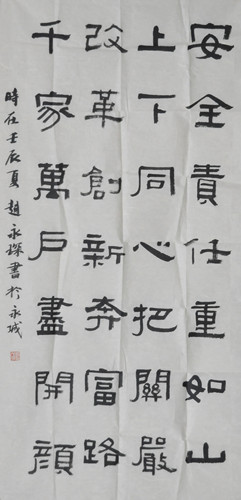 安全責任重如山
上下同心把關嚴
改革創新奔富路
千家萬戶盡開顔
時在壬辰夏趙永琛書於永城